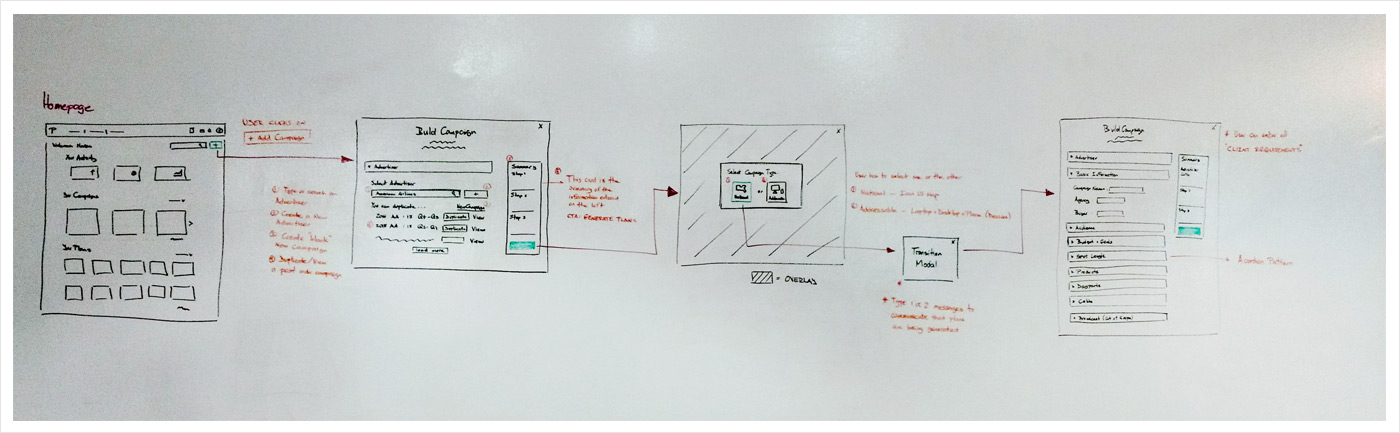 Homepage
Welcome
Your Activity
Your Campaigns
Your Plans
USER CLICKS ON
+ Add Campaign
① Type or search an
Advertiser
② Creates a New
Advertiser
③ Create "blank"
new campaign
④ Duplicate/View
a past campaign
Build Campaign
x
+ Advertiser
Select Advertiser
American Airlines
+
You can duplicate...
New Campaign
Duplicate View
Duplicate View
View
Load more
Summary
Step 1
Step 2
⑤ This card is the
summary of the
information entered
on the left
CTA: GENERATE PLANS
x
Select Campaign Type
or
= OVERLAY
User has to select one or the other
① National - Icon US map
② Addressable - Laptop + Desktop + Phone
x
Transition
Modal
* Type 1 or 2 messages to
communicate that plans
are being generated
Build Campaign
x
+ Advertiser
Basic Information
Campaign Name
Agency
Buyer
+ Audience
+ Budget + Goals
+ Spot Length
+ Products
+ Dayparts
+ Cable
Summary
Step 1
Step 2
* User can enter all
"CLIENT REQUIREMENTS"
Accordion Pattern